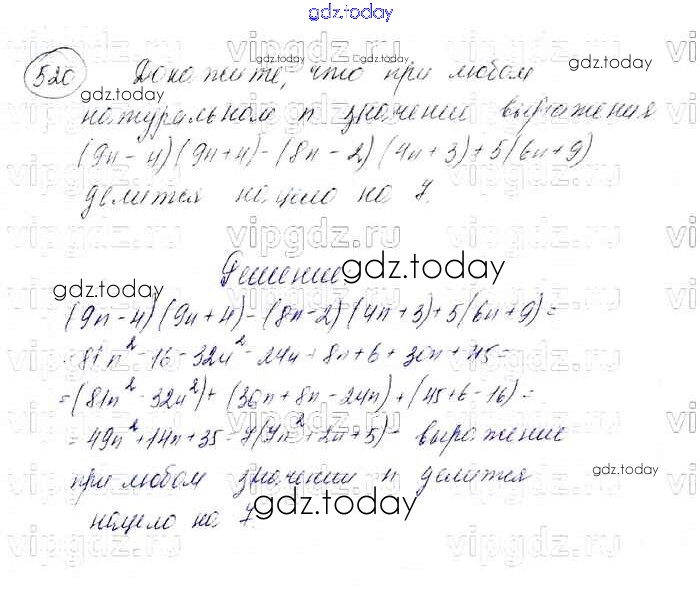 gdz.today
520 Докажите, что при любом
натуральном n значение выражения
(9n-4)(9n+4)-(8n-2)(4n+3)+5(6n+9)
делится нацело на 7.
Решение
(9n-4)(9n+4)-(8n-2)(4n+3)+5(6n+9)=
81n²-16-32n²-24n+8n+6+30n+45=
=(81n²-32n²)+(30n+8n-24n)+(45+6-16)=
=49n²+14n+35-7(7n²+2n+5)- выражение
при любом значении n делится
нацело на 7.
gdz.today
gdz.today
gdz.today
gdz.today
gdz.today
gdz.today
gdz.today
gdz.today
gdz.today
gdz.today
gdz.today
vipgdz.ru
vipgdz.ru
vipgdz.ru